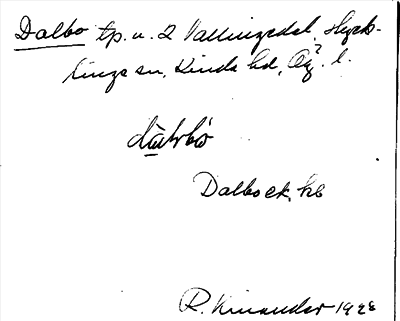 Dalbo tp. u. 2 Vallingedal, Hyck-
linge sn, Kinda hd, Ög. l.
Dalbo ek. kb
R. Kinander 1928